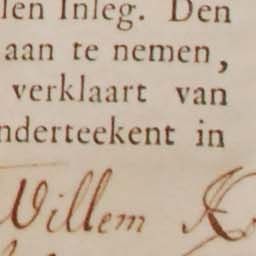 len Inleg. Den
aan te nemen,
verklaart van
nderteekent in
Willem